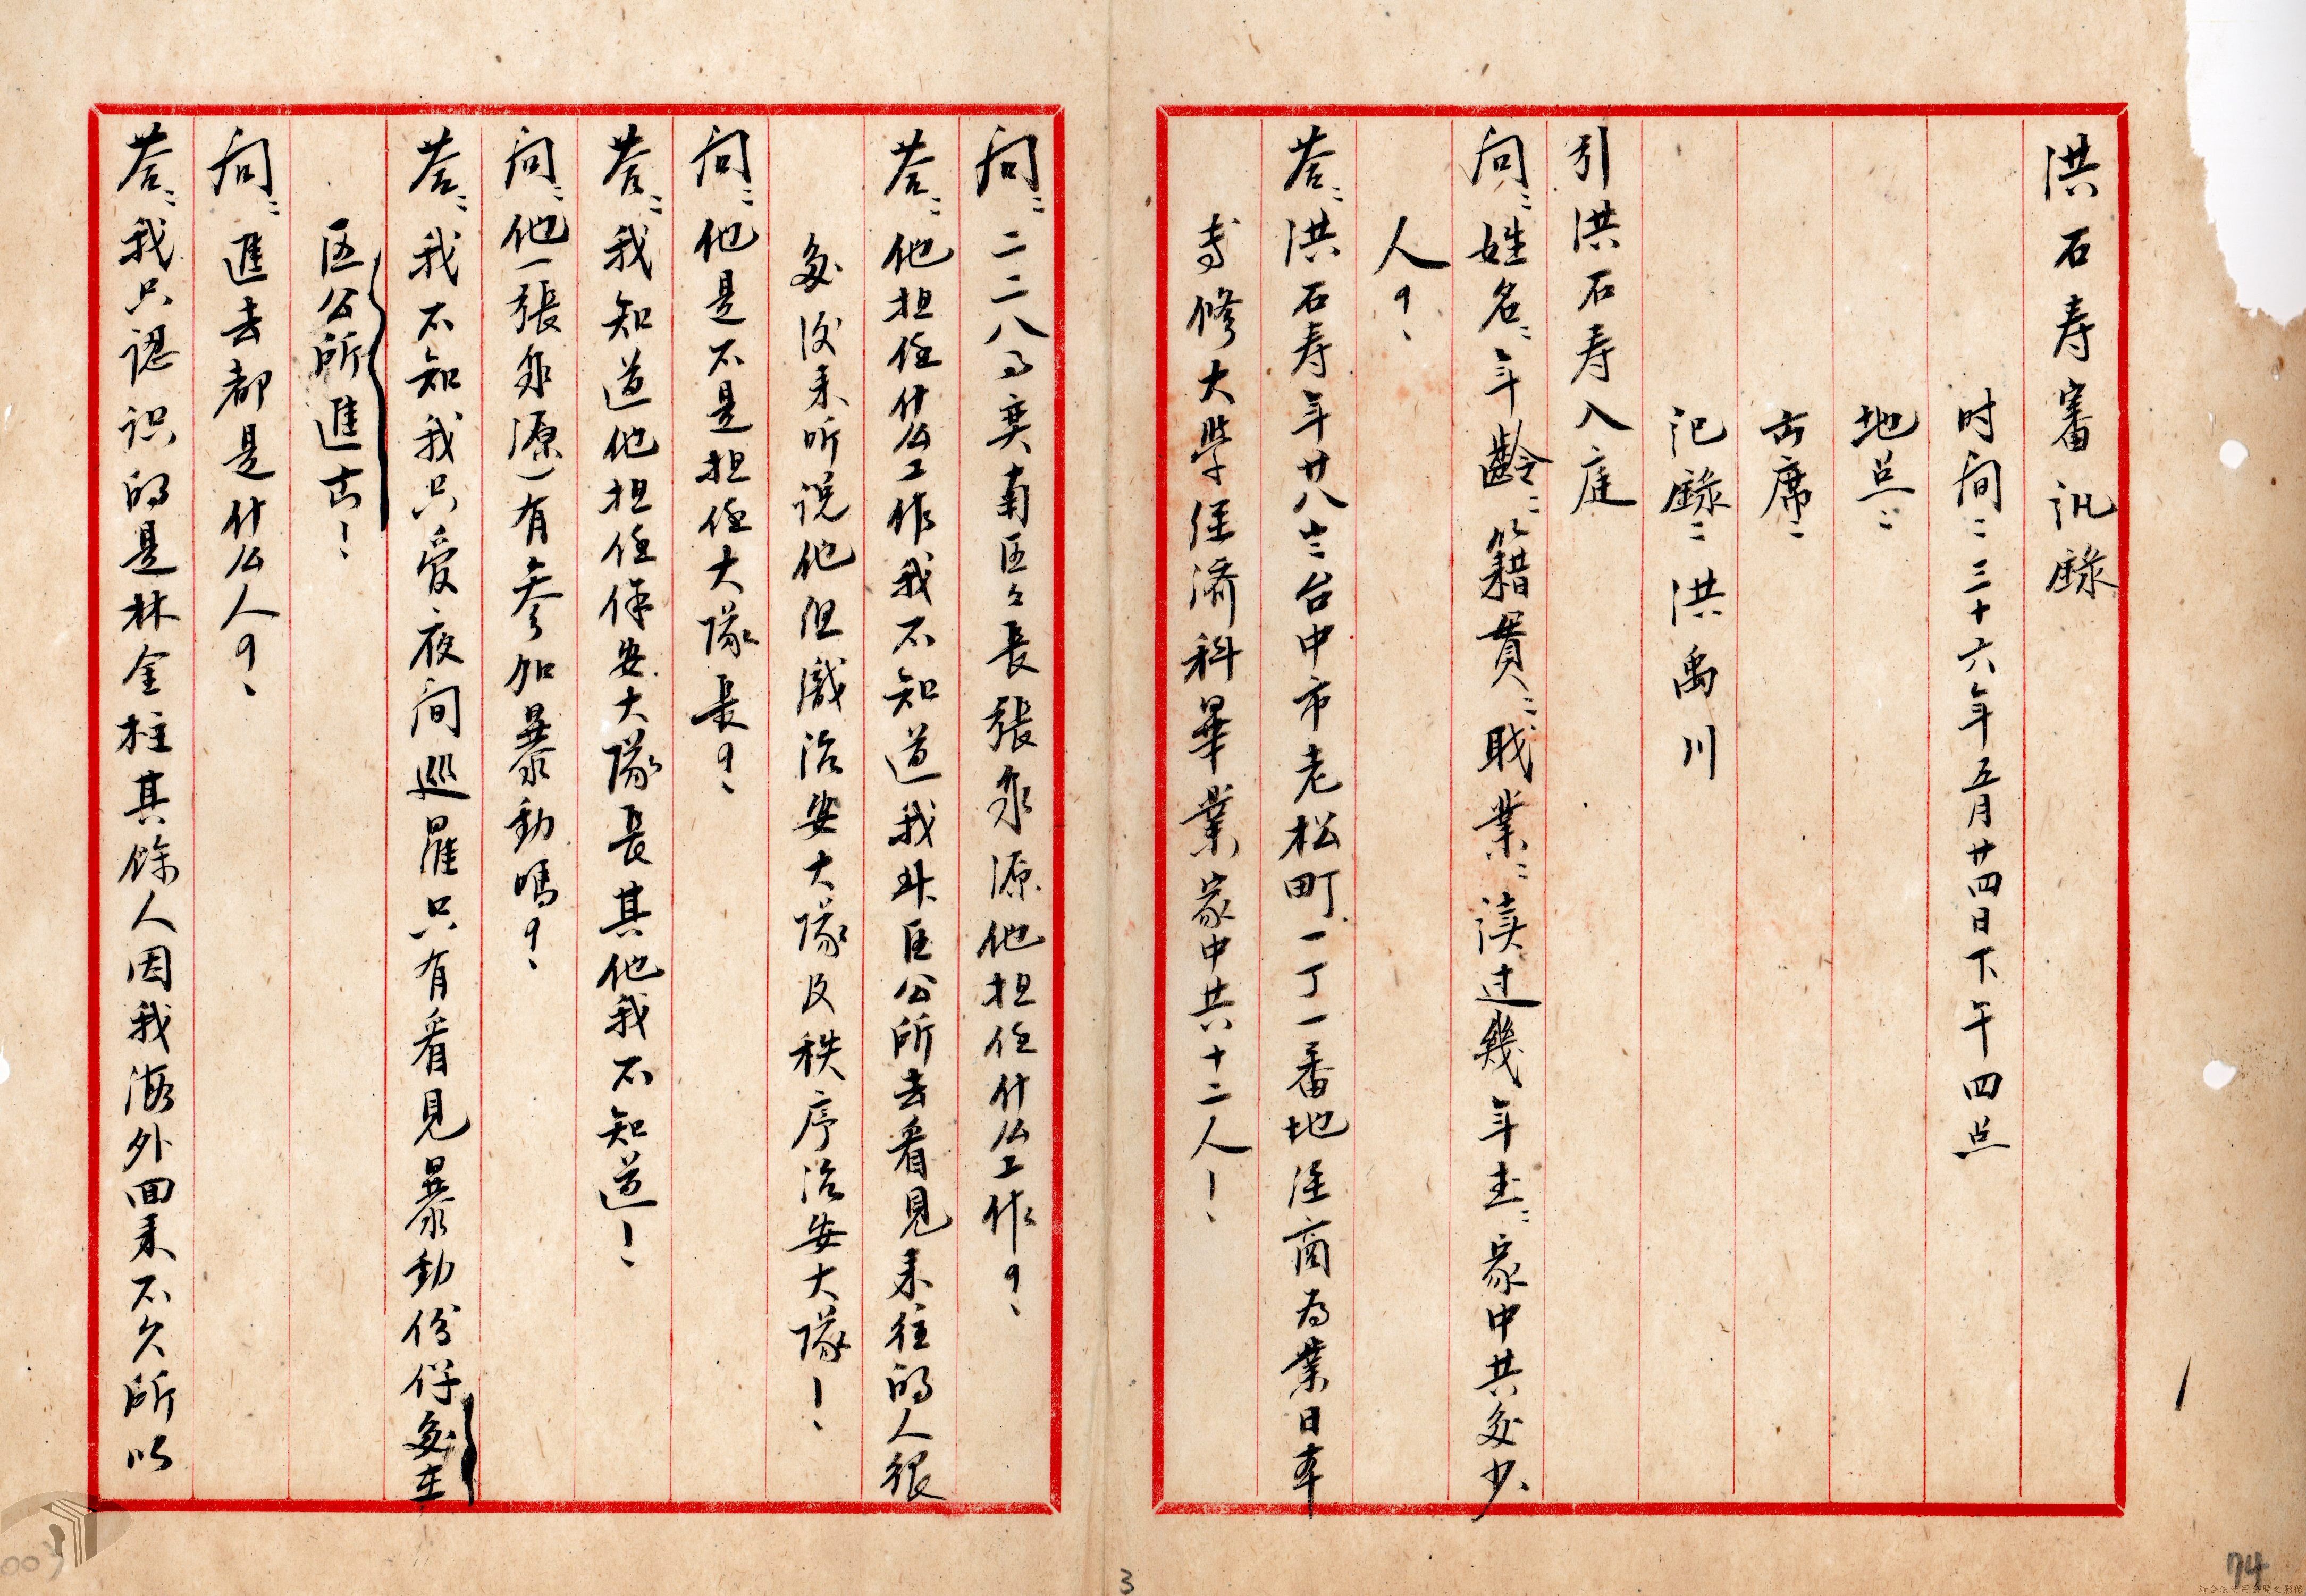 洪石寿審訊錄
时间：三十六年五月廿四日下午四点
地点：
出席：
记錄：洪禹川
引洪石寿入庭
问：姓名：年齡：籍貫：职業：渎过幾年书：家中共多少
人？
荅：洪石寿年廿八岁台中市老松町一丁一番地经商为業日本
专修大学经济科畢業家中共十二人！
问：二二八事变南区区長張乖源他担任什么工作？
荅：他担任什么工作我不知道我到区公所去看見来往的人很
多後来听说他组織治安大隊及秩序治安大隊！
问：他是不是担任大隊長？
荅：我知道他担任保安大隊長其他我不知道！
问：他（張乖源）有参加暴動嗎？
荅：我不知我只爱夜间巡羅只有看見暴動份仔多在
区公所進出！
问：進去都是什么人？
荅：我只認识的是林金柱其餘人因我海外回来不久所以
3
74
003
請合法使用公開之影像